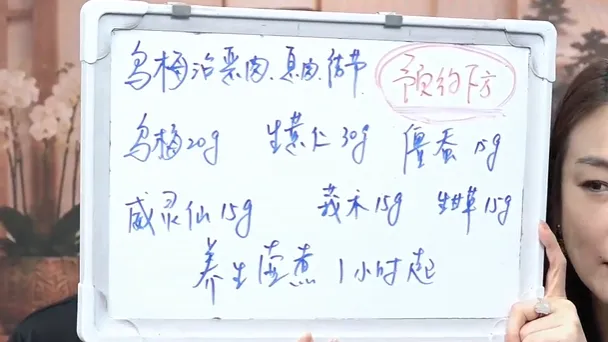 乌梅治恶肉、息肉、结节 预约下方
乌梅20g 生薏仁30g 僵蚕15g
威灵仙15g 莪术15g 生甘草15g
养生壶煮1小时起